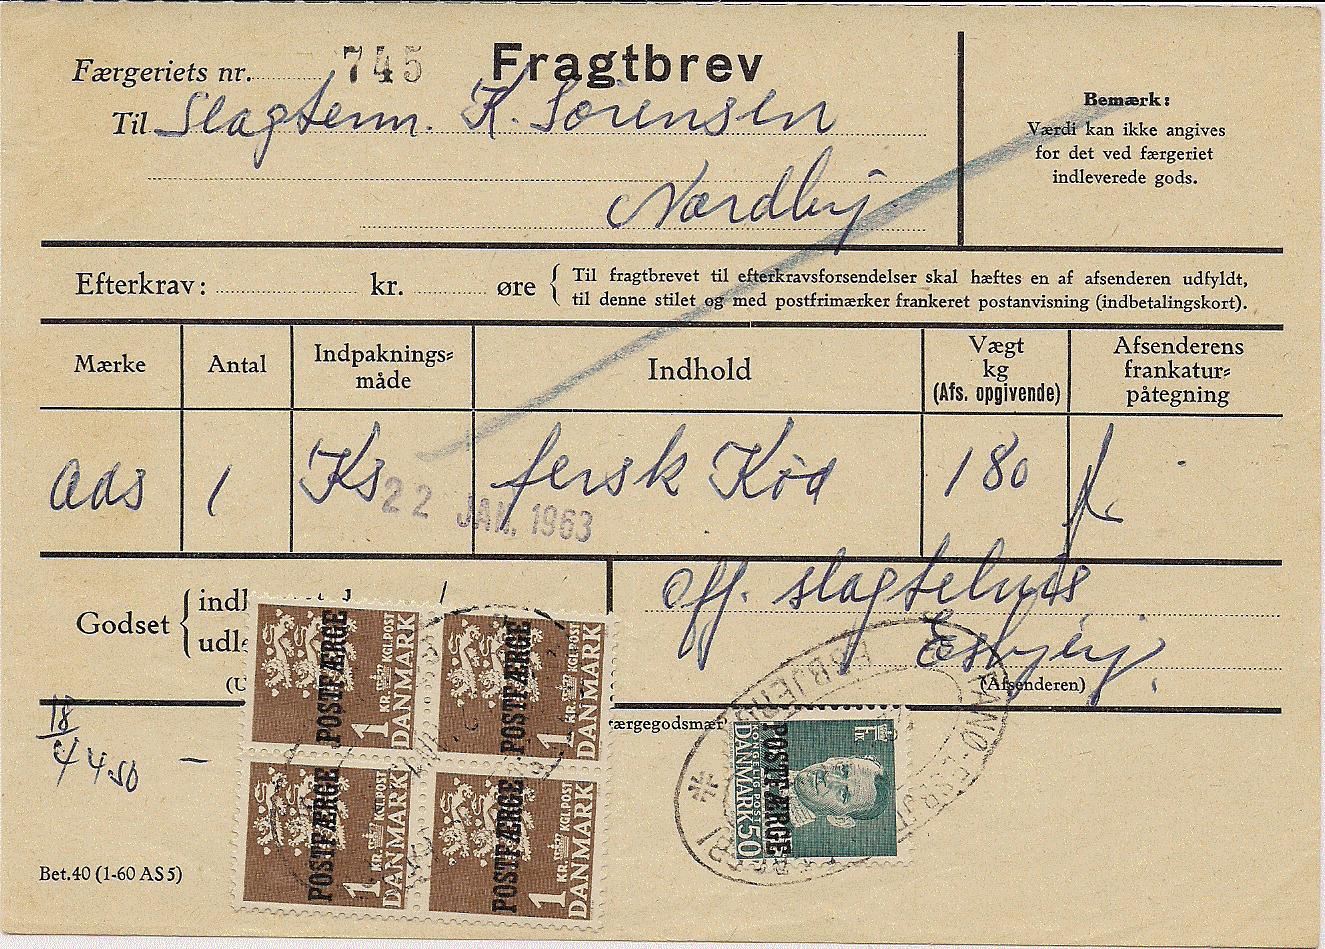 Færgeriets nr. 745 Fragtbrev
Til Slagterm. K. Sørensen
Nordby
Bemærk:
Værdi kan ikke angives
for det ved færgeriet
indleverede gods.
Efterkrav: kr. øre { Til fragtbrevet til efterkravsforsendelser skal hæftes en af afsenderen udfyldt,
til denne stilet og med postfrimærker frankeret postanvisning (indbetalingskort).
Mærke Antal Indpaknings-
måde Indhold Vægt
kg
(Afs. opgivende) Afsenderens
frankatur-
påtegning
ads 1 Ks fersk Kød 180
22 JAN. 1963
Godset { indl
udle
(U
off. slagtehus
Esbjerg.
(Afsenderen)
ærgegodsmær
18
4 450 —
1 KR. KGL.POST DANMARK POSTFÆRGE
1 KR. KGL.POST DANMARK POSTFÆRGE
1 KR. KGL.POST DANMARK POSTFÆRGE
1 KR. KGL.POST DANMARK POSTFÆRGE
DANMARK 50 POSTFÆRGE
Bet. 40 (1-60 AS 5)